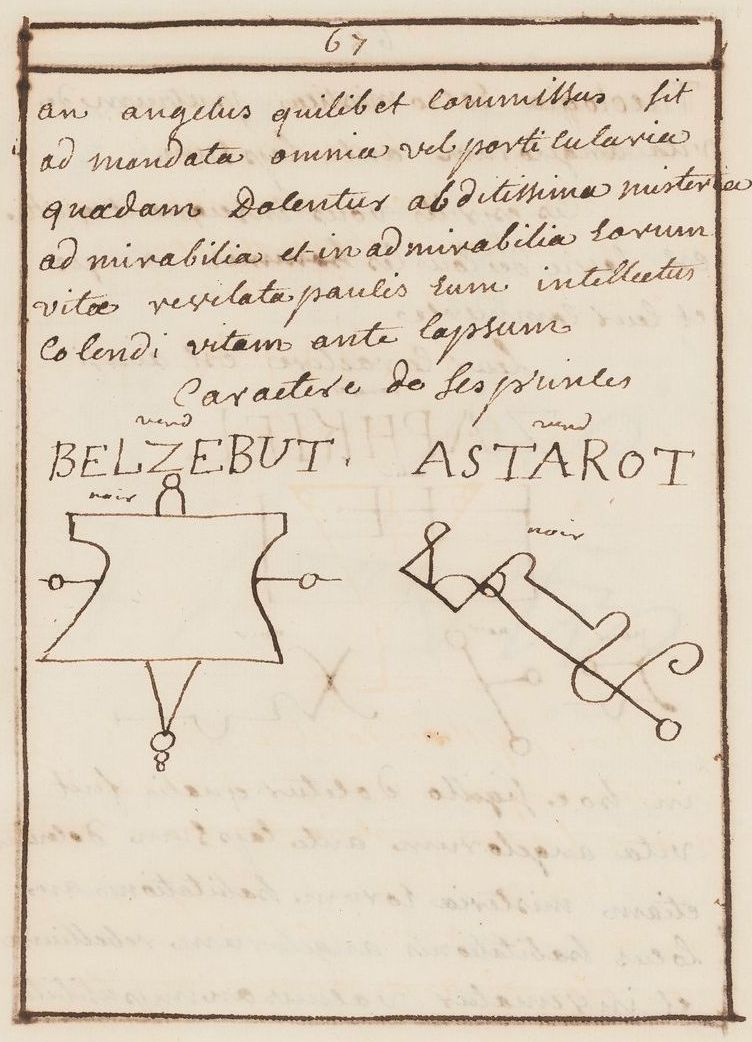 67
an angelus quilibet commissus sit
ad mandata omnia vel porticularia
quadam Dolentur abditissima misteria
admirabilia et inadmirabilia eorum
vitæ revelata paulis cum intellectus
colendi vitam ante lapsum
Caractere de ses princes
verd verd
BELZEBUT. ASTAROT
noir noir